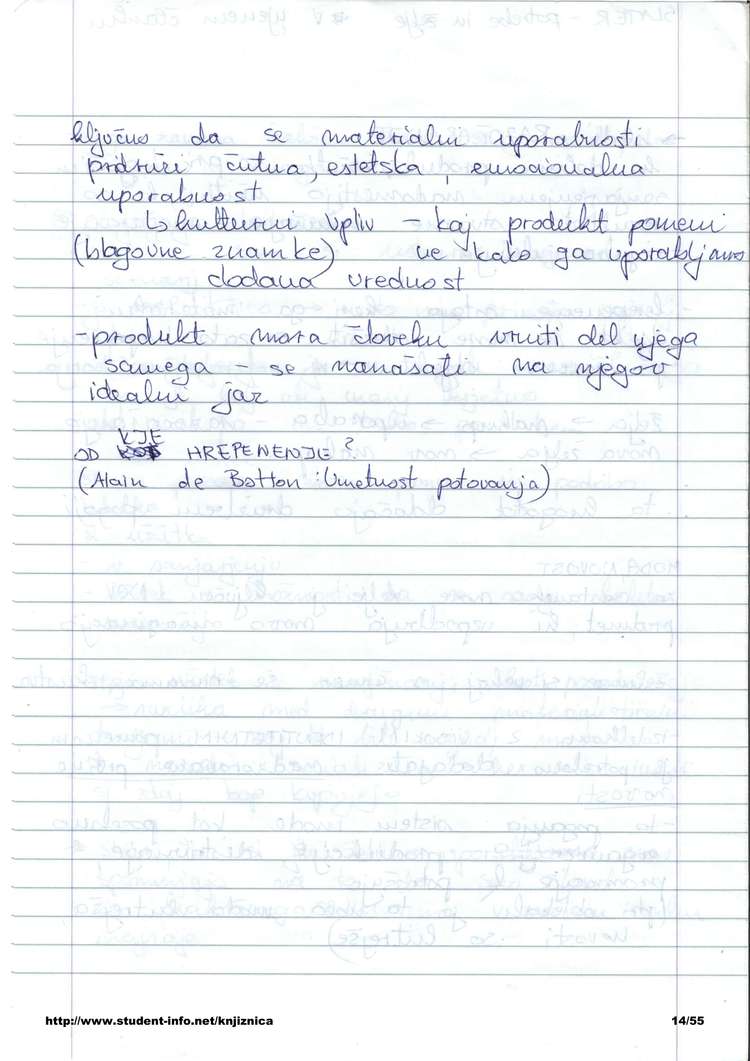 ključno da se materialni uporabnosti
pridruži čutna, estetska, emocionalna
uporabnost
↳ kulturni vpliv – kaj produkt pomeni
(blagovne znamke) ne kako ga uporabljamo
dodana vrednost
-produkt mora človeku vrniti del njega
samega – se nanašati na njegov
idealni jaz
OD KJE HREPENENJE?
(Alain de Botton: Umetnost potovanja)
http://www.student-info.net/knjiznica 14/55